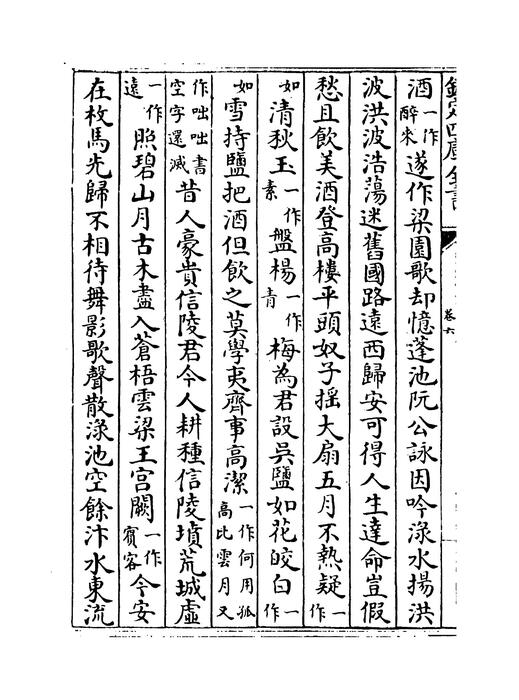 欽定四庫全書
卷六
酒一作醉來遂作梁園歌却憶蓬池阮公詠因吟淥水揚洪
波洪波浩蕩迷舊國路遠西歸安可得人生達命豈假
愁且飲美酒登高樓平頭奴子揺大扇五月不熱疑一作
如清秋玉一作素盤楊一作青梅為君設吳鹽如花皎白一作
如雪持鹽把酒但飲之莫學夷齊事高潔一作何用孤高比雲月又
作咄咄書空字還滅昔人豪貴信陵君今人耕種信陵墳荒城虛
一作遠照碧山月古木盡入蒼梧雲梁王宮闕一作賓客今安
在枚馬光歸不相待舞影歌聲散淥池空餘汴水東流